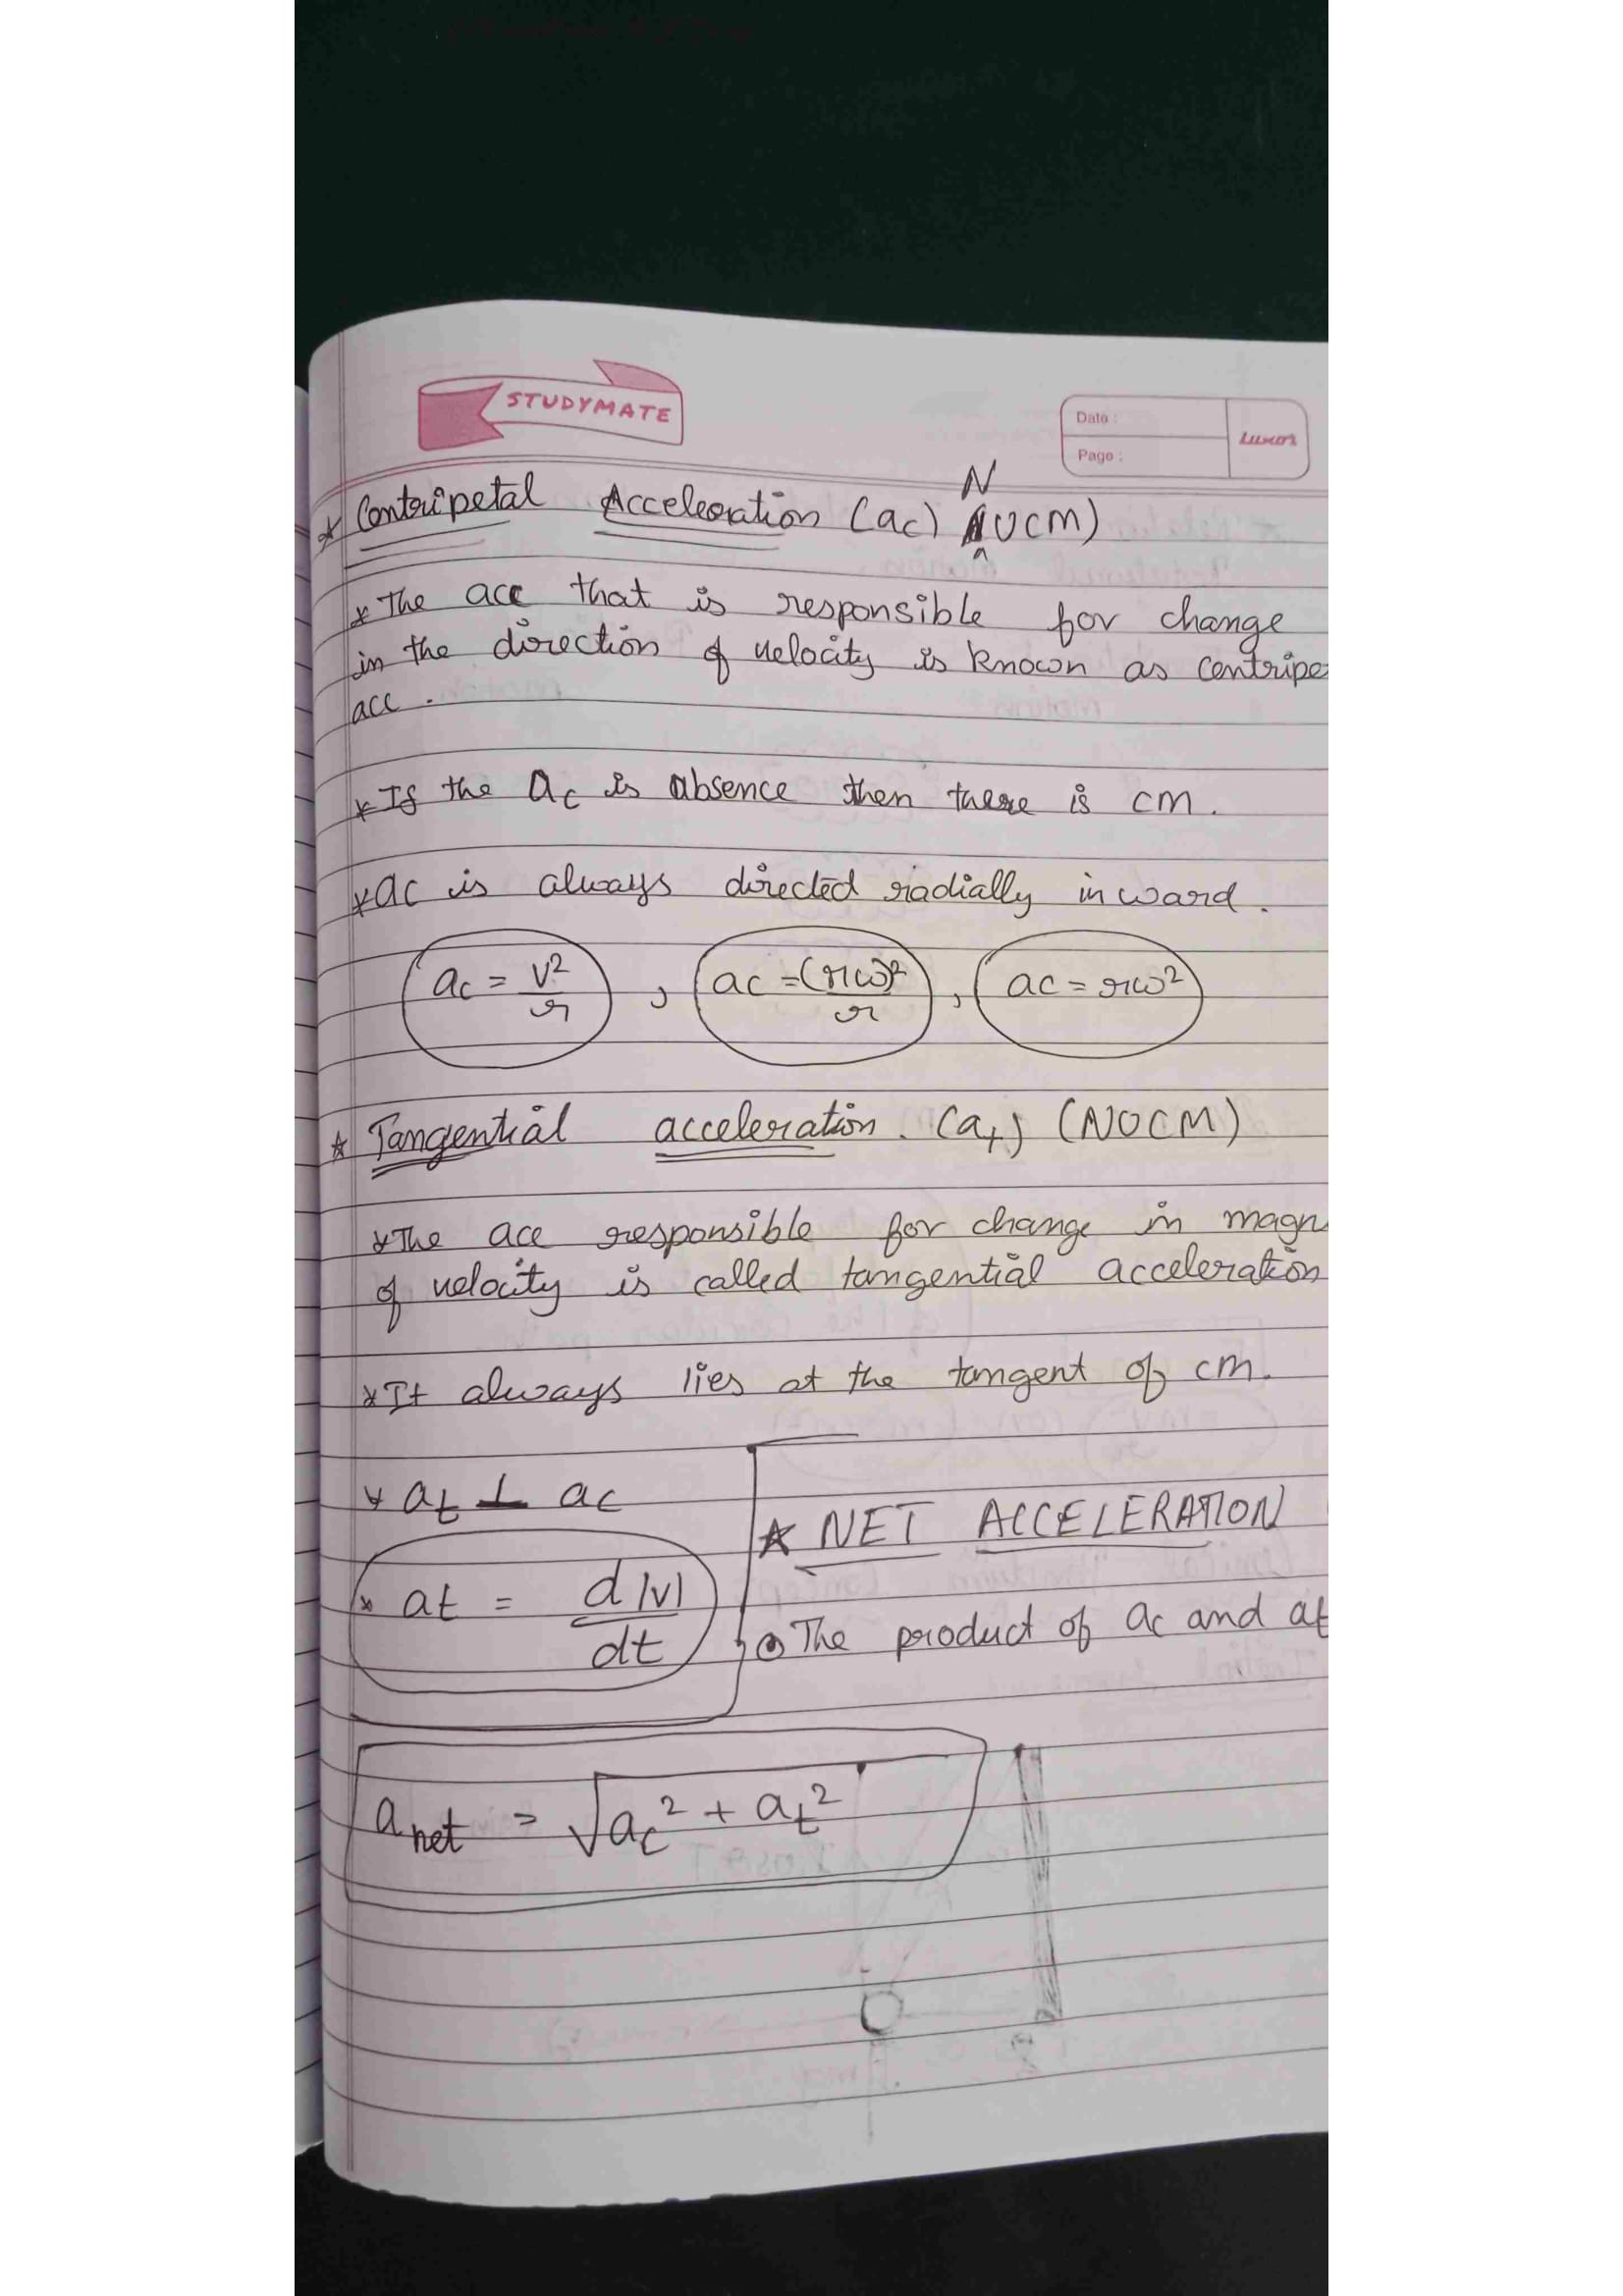 STUDYMATE
Date :
Page :
Luxor
* Centripetal Acceleration (ac) NUCM)
* The acc that is responsible for change
in the direction of velocity is known as centripe
acc.
* If the ac is absence then there is cm.
* ac is always directed radially inward.
ac = v²/r , ac = (rω)²/r , ac = rω²
* Tangential acceleration. (at) (NUCM)
* The acc responsible for change in magn
of velocity is called tangential acceleration
* It always lies at the tangent of cm.
* at ⊥ ac
* at = d|v|/dt
* NET ACCELERATION
The product of ac and at
anet = √ac² + at²